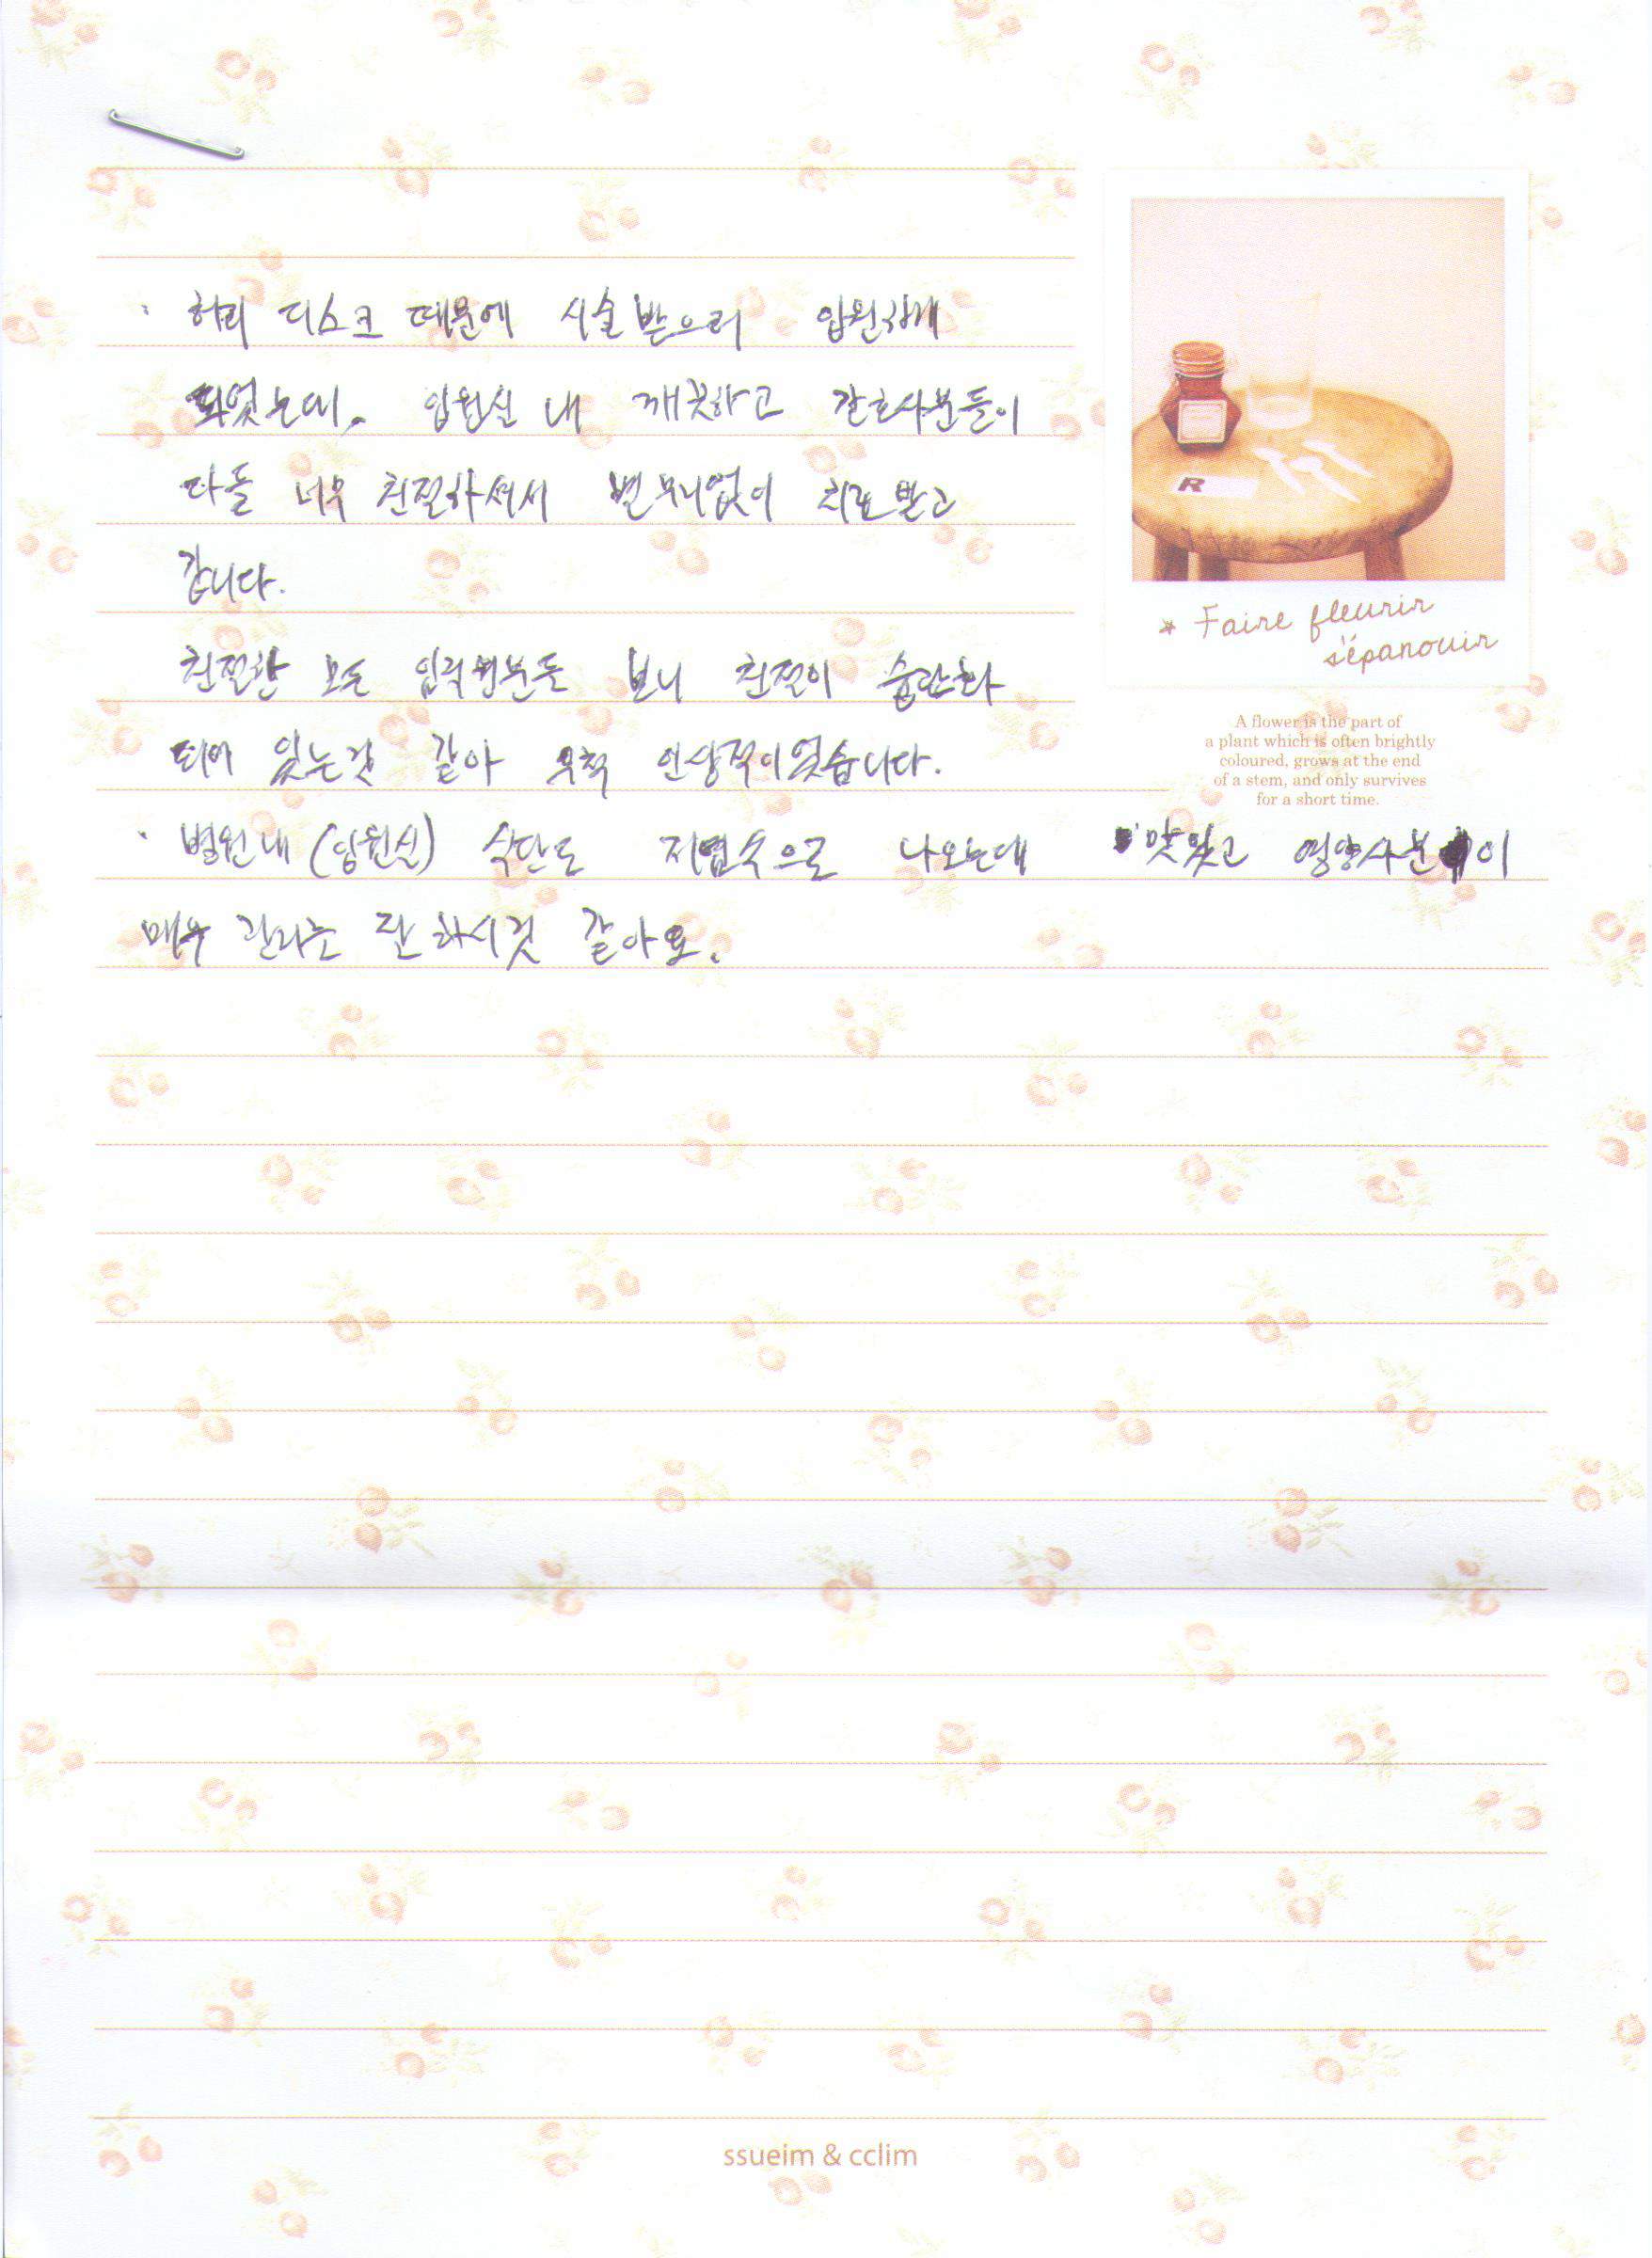 · 허리 디스크 때문에 시술받으러 입원하게
되었는데, 입원실 내 깨끗하고 간호사분들이
다들 너무 친절하셔서 별 무리없이 치료받고
갑니다.
친절한 모든 인력분들 보니 친절이 습관화
되어 있는것 같아 무척 인상적이었습니다.
· 병원내 (입원실) 식단도 저염식으로 나오는데 맛있고 영양사분이
매우 관리는 잘 하시것 같아요.
R
* Faire fleurir
s'épanouir
A flower is the part of
a plant which is often brightly
coloured, grows at the end
of a stem, and only survives
for a short time.
ssueim & cclim